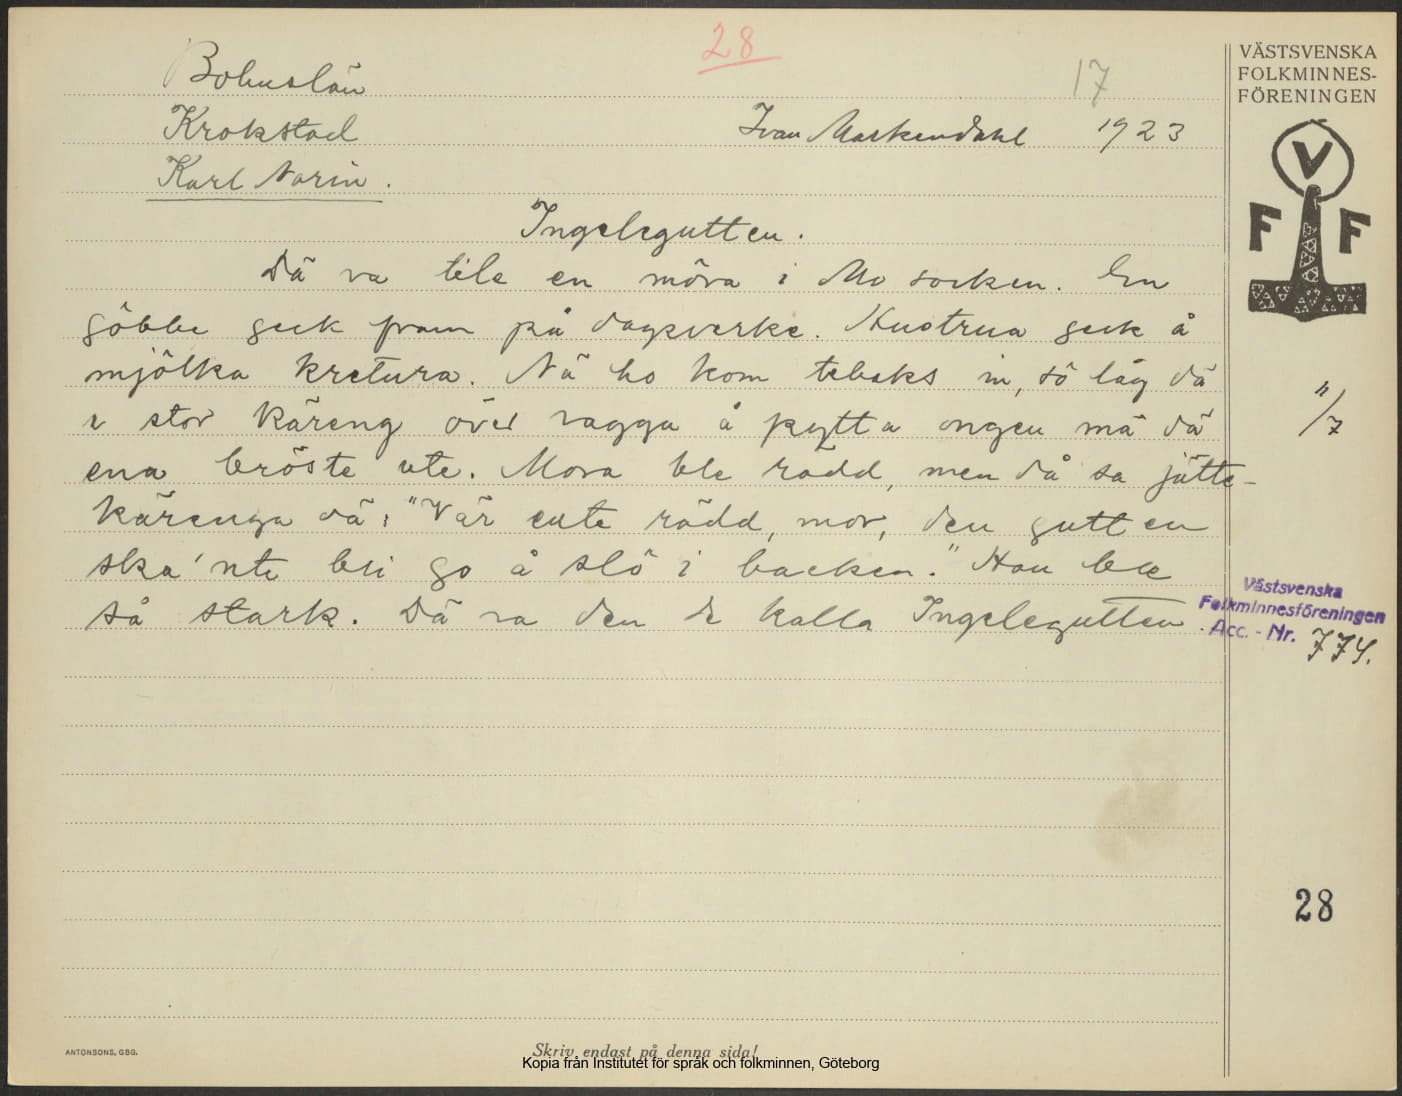 28
17
VÄSTSVENSKA
FOLKMINNES-
FÖRENINGEN
Bohuslän
Krokstad
Ivan Markendahl 1923
Karl Norin.
V
F F
Ingelegutten.
Dä va tile en möra i Mo socken. En
göbbe geck fram på dagsverke. Hustrua geck å
mjölka kretura. Nä ho kom tebaks in, så låg dä
e stor käreng över vagga å pytta ongen mä dä
ena bröste ute. Mora ble rädd, men då sa jätte-
kärenga dä: "Vär ente rädd, mor, den gutten
ska' nte bli go å slö i backen." Han ble
så stark. Dä va den de kalla Ingelegutten.
"/7
Västsvenska
Folkminnesföreningen
Acc. - Nr. 774.
28
ANTONSONS, GBG.
Skriv endast på denna sida!
Kopia från Institutet för språk och folkminnen, Göteborg